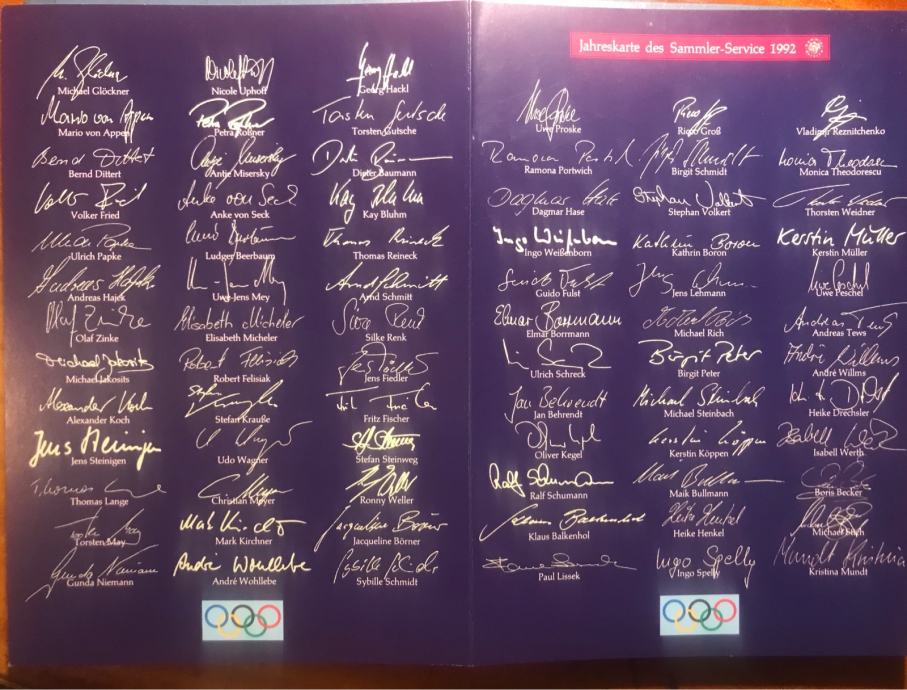 Jahreskarte des Sammler-Service 1992
Michael Glöckner
Nicole Uphoff
Georg Hackl
Mario von Appen
Petra Roßner
Torsten Gutsche
Bernd Dittert
Antje Misersky
Dieter Baumann
Volker Fried
Anke von Seck
Kay Bluhm
Ulrich Papke
Ludger Beerbaum
Thomas Reineck
Andreas Hajek
Uwe-Jens Mey
Arnd Schmitt
Olaf Zinke
Elisabeth Micheler
Silke Renk
Michael Jakosits
Robert Felisiak
Jens Fiedler
Alexander Koch
Stefan Krauße
Fritz Fischer
Jens Steinigen
Udo Wagner
Stefan Steinweg
Thomas Lange
Christian Meyer
Ronny Weller
Torsten May
Mark Kirchner
Jacqueline Börner
Gunda Niemann
André Wohllebe
Sybille Schmidt
Uwe Proske
Rico Groß
Vladimir Reznitchenko
Ramona Portwich
Birgit Schmidt
Monica Theodorescu
Dagmar Hase
Stephan Volkert
Thorsten Weidner
Ingo Weißenborn
Kathrin Boron
Kerstin Müller
Guido Fulst
Jens Lehmann
Uwe Peschel
Elmar Borrmann
Michael Rich
Andreas Tews
Ulrich Schreck
Birgit Peter
André Willms
Jan Behrendt
Michael Steinbach
Heike Drechsler
Oliver Kegel
Kerstin Köppen
Isabell Werth
Ralf Schumann
Maik Bullmann
Boris Becker
Klaus Balkenhol
Heike Henkel
Michael Stich
Paul Lissek
Ingo Spelly
Kristina Mundt